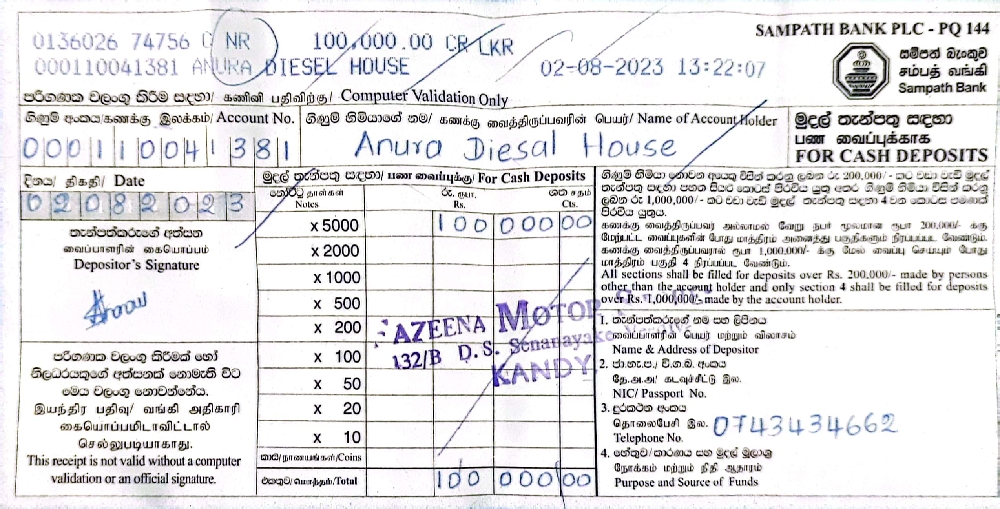 SAMPATH BANK PLC - PQ 144
0136026 74756 C NR 100,000.00 CR LKR
000110041381 ANURA DIESEL HOUSE 02-08-2023 13:22:07
සම්පත් බැංකුව
சம்பத் வங்கி
Sampath Bank
පරිගණක වලංගු කිරීම සඳහා/ கணினி பதிவிற்கு/ Computer Validation Only
ගිණුම් අංකය/கணக்கு இலக்கம்/ Account No.
000110041381
ගිණුම් හිමියාගේ නම/ கணக்கு வைத்திருப்பவரின் பெயர்/ Name of Account Holder
Anura Diesal House
මුදල් තැන්පතු සඳහා
பண வைப்புக்காக
FOR CASH DEPOSITS
දිනය/ திகதி/ Date
02082023
තැන්පත්කරුගේ අත්සන
வைப்பாளரின் கையொப்பம்
Depositor's Signature
පරිගණක වලංගු කිරීමක් හෝ
නිලධරයකුගේ අත්සනක් නොමැති විට
මෙය වලංගු නොවන්නේය.
இயந்திர பதிவு/ வங்கி அதிகாரி
கையொப்பமிடாவிட்டால்
செல்லுபடியாகாது.
This receipt is not valid without a computer
validation or an official signature.
මුදල් තැන්පතු සඳහා/ பண வைப்புக்கு/ For Cash Deposits
නෝට්ටු தாள்கள் රු. ரூபா, ශත சதம்
Notes Rs. Cts.
x 5000 100 000 00
x 2000
x 1000
x 500
x 200
x 100
x 50
x 20
x 10
කාසි/நாணயங்கள்/Coins
එකතුව/மொத்தம்/Total 100 000 00
FAZEENA MOTOR
132/B D. S. Senanayake
KANDY
ගිණුම් හිමියා නොවන අයෙකු විසින් කරනු ලබන රු 200,000/- කට වඩා වැඩි මුදල්
තැන්පතු සඳහා පහත සියළු කොටස් පිරවිය යුතු අතර ගිණුම් හිමියා විසින් කරනු
ලබන රු 1,000,000/- කට වඩා වැඩි මුදල් තැන්පතු සඳහා 4 වන කොටස පමණක්
පිරවිය යුතුය.
கணக்கு வைத்திருப்பவர் அல்லாமல் வேறு நபர் மூலமான ரூபா 200,000/- க்கு
மேற்பட்ட வைப்புகளின் போது மாத்திரம் அனைத்து பகுதிகளும் நிரப்பப்பட வேண்டும்.
கணக்கு வைத்திருப்பவரால் ரூபா 1,000,000/- க்கு மேல் வைப்பு செய்யும் போது
மாத்திரம் பகுதி 4 நிரப்பப்பட வேண்டும்.
All sections shall be filled for deposits over Rs. 200,000/- made by persons
other than the account holder and only section 4 shall be filled for deposits
over Rs. 1,000,000/- made by the account holder.
1. තැන්පත්කරුගේ නම සහ ලිපිනය
வைப்பாளரின் பெயர் மற்றும் விலாசம்
Name & Address of Depositor
2. ජා.හැ.ප./ වි.ග.බ. අංකය
தே.அ.அ/ கடவுச்சீட்டு இல.
NIC/ Passport No.
3. දුරකථන අංකය
தொலைபேசி இல.
Telephone No. 0743434662
4. හේතුව/කාරණය සහ මුදල් මූලාශ්‍ර
நோக்கம் மற்றும் நிதி ஆதாரம்
Purpose and Source of Funds